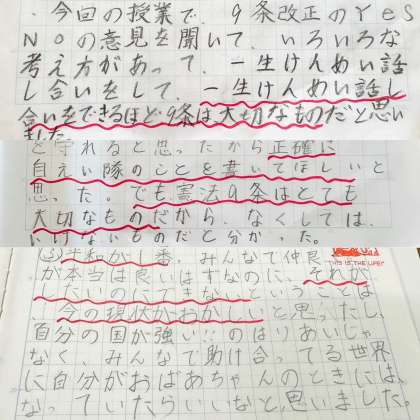 ・今回の授業で、9条改正のYes
Noの意見を聞いて、いろいろな
考え方があって、一生けんめい話
し合いをして、一生けんめい話し
合いをできるほど9条は大切なものだと思い
ました
と守れると思ったから正確に
自えい隊のことを書いてほしいと
思った。でも憲法9条はとても
大切なものだから、なくしては、
いけないものだと分かった。
(3)平和が1番、みんなで仲良
"THIS IS THE LIFE!"
が本当は良いはずなのに、それが
したいのにできないということは、
今の現状がおかしいと思ったし、
自分の国が強い!!のはりあいじゃ
なく、みんなで助け合ってる世界
に自分がおばあちゃんのときには、
なっていたらいいなと思いました。